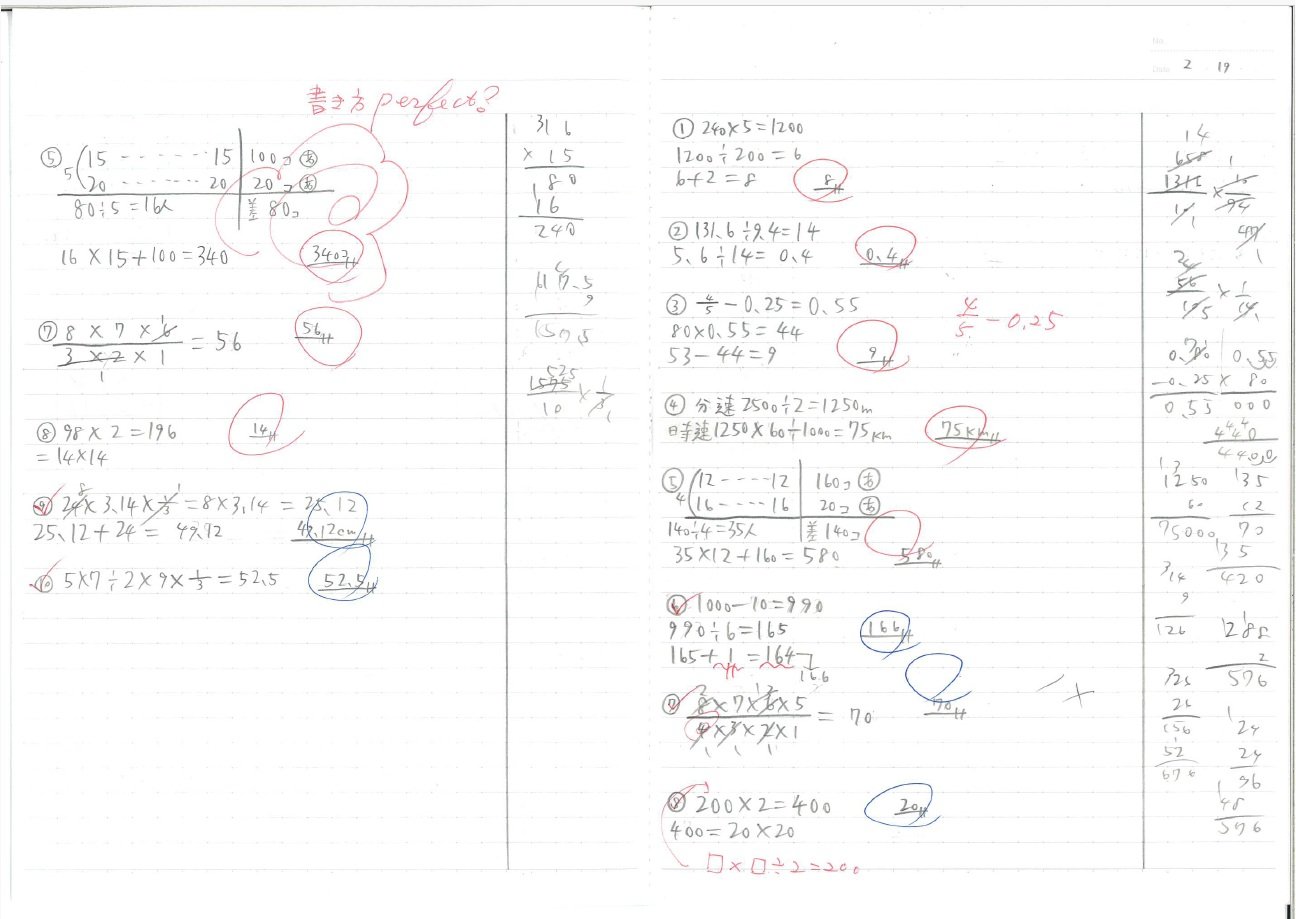 書き方 perfect?
⑤ 5 15 ------- 15 100コ あ
20 ------- 20 20コ あ
80÷5=16人 差 80コ
16×15+100=340 340コ
⑦ 8×7×6
3×2×1
1
= 56 56
⑧ 98×2=196 14
=14×14
⑨ 24×3.14×1/3=8×3.14=25.12
25.12+24=49.92 49.12cm
⑩ 5×7÷2×9×1/3=52.5 52.5
316
×15
180
16
240
525
1575
10
× 1/3
No.
Date 2 19
① 240×5=1200
1200÷200=6
6+2=8 8
② 131.6÷9.4=14
5.6÷14=0.4 0.4
③ 4/5-0.25=0.55 4/5-0.25
80×0.55=44
53-44=9 9
④ 分速2500÷2=1250m
時速1250×60÷1000=75km 75km
⑤ 4 12-----12 160コ あ
16-----16 20コ あ
140÷4=35人 差140コ
35×12+160=580 580
⑥ 1000-10=990
990÷6=165 166
165+1=164
166
⑦ 8×7×6×5
4×3×2×1
= 70 70
⑧ 200×2=400 20
400=20×20
□×□÷2=200
14
658
1316
0.55
-0.25 × 80
0.55 000
440
4400
1250 135
60 12
75000 70
35
420
314
9
126 288
2
576
26
156 24
52 24
676 96
48
576